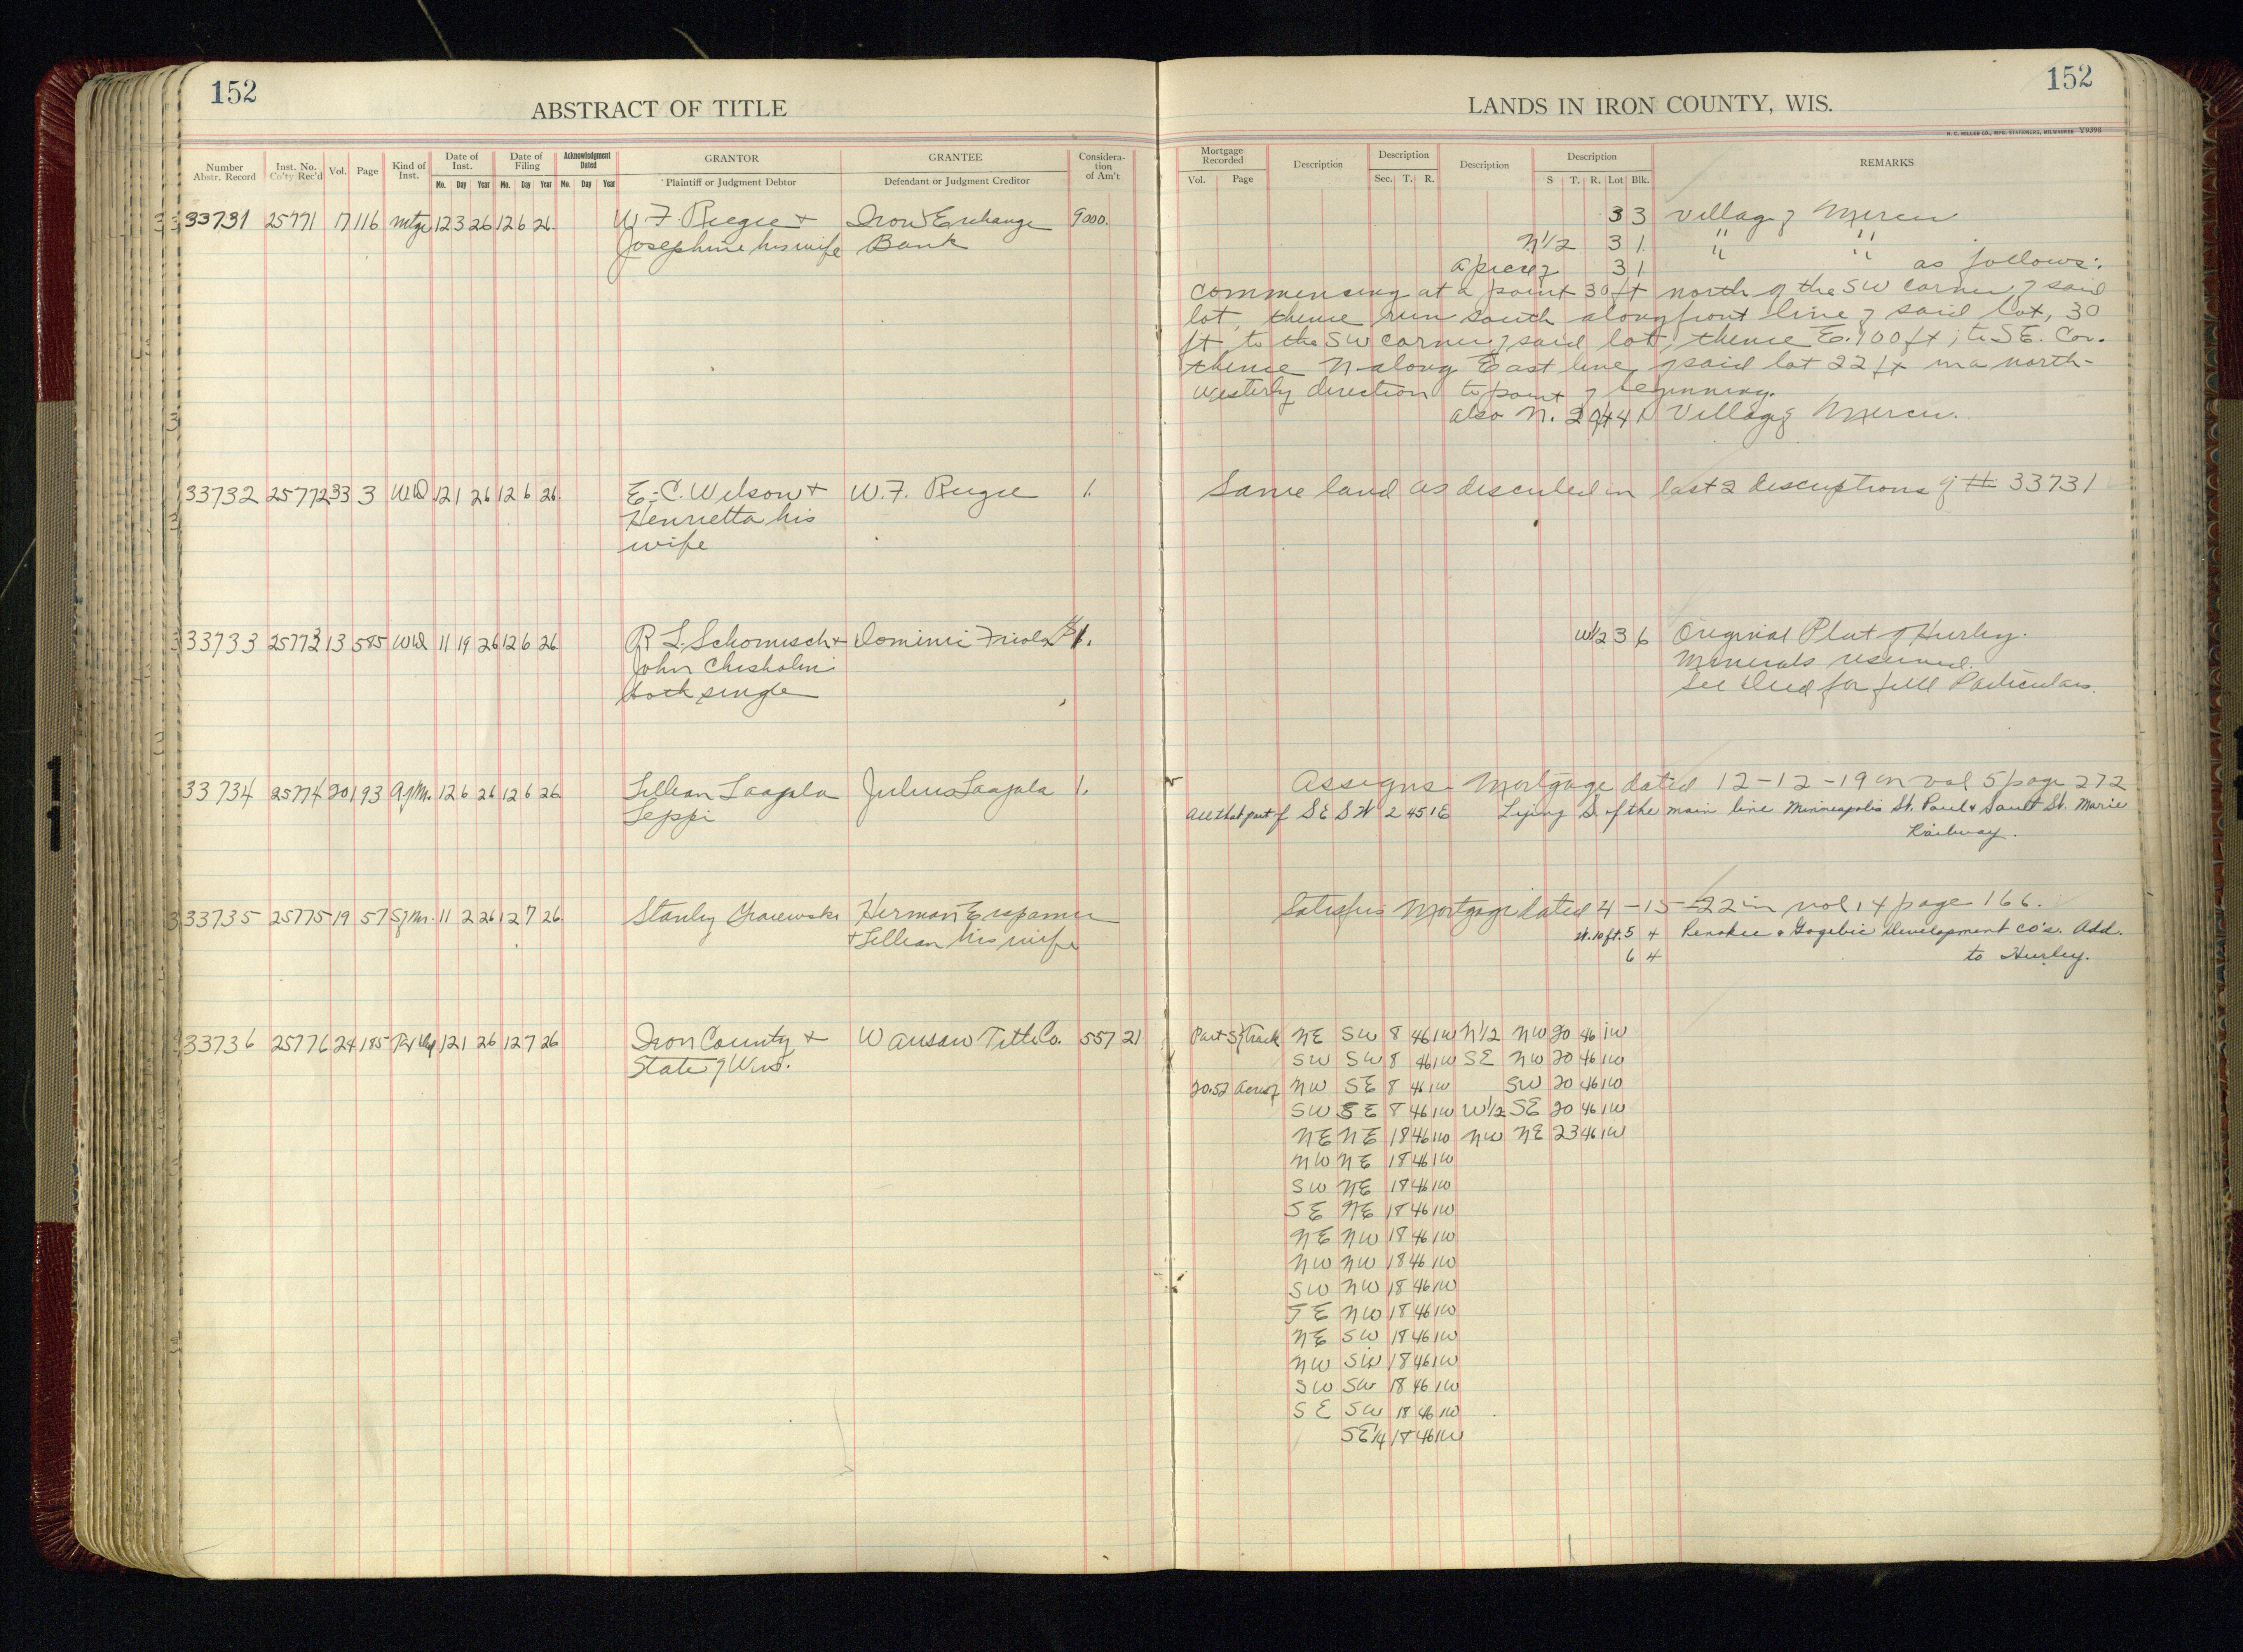 152
ABSTRACT OF TITLE
Number Abstr. Record
Inst. No. Co'ty Rec'd
Vol.
Page
Kind of Inst.
Date of Inst.
Mo. Day Year
Date of Filing
Mo. Day Year
Acknowledgment Dated
Mo. Day Year
GRANTOR
Plaintiff or Judgment Debtor
GRANTEE
Defendant or Judgment Creditor
Consideration of Am't
33731 25771 17 116 Mtge 12 3 26 12 6 26 W. F. + Iron Exchange 9000.
Josephine his wife Bank
33732 25772 33 3 WD 12 1 26 12 6 26. E. C. Wilson + W. F. 1.
Henrietta his
wife
33733 25773 13 585 WD 11 19 26 12 6 26 R L. Schomisch + Dominic $1.
John Chisholm
both single
33734 25774 20 193 A of M. 12 6 26 12 6 26 Lillian Laajala Julius Laajala 1.
Seppi
33735 25775 19 57 S of M. 11 2 26 12 7 26. Stanley Herman
+ Lillian his wife
33736 25776 24 185 12 1 26 12 7 26 Iron County + Wausau Title Co. 557 21
State of Wis.
152
LANDS IN IRON COUNTY, WIS.
H. C. MILLER CO., MFG. STATIONERS, MILWAUKEE V9398
Mortgage Recorded
Vol. Page
Description
Description
Sec. T. R.
Description
Description
S T. R. Lot Blk.
REMARKS
3 3 Village of Mercer
N1/2 3 1. " "
a piece of 3 1 " " as follows:
commencing at a point 30 ft north of the SW corner of said
lot, thence run south along front line of said lot, 30
ft to the SW corner of said lot, thence E. 100 ft; to S.E. Cor.
thence N along East line of said lot 22 ft in a north-
westerly direction to point of beginning.
also N. 20 ft 4 1 Village of Mercer.
Same land as described in last 2 descriptions of # 33731
W1/2 3 6 Original Plat of Hurley.
Minerals reserved.
See Deed for full Particulars.
Assigns Mortgage dated 12-12-19 in vol 5 page 272
All that part of SE SW 2 45 1E Lying S. of the main line Minneapolis St. Paul & Sault St. Marie
Railway.
Satisfies Mortgage dated 4-15-22 in vol 14 page 166.
W. 10 ft. 5 4 Penokee & Gogebic Development Co's. Add.
6 4 to Hurley.
Part S of Track NE SW 8 46 1W N1/2 NW 20 46 1W
SW SW 8 46 1W SE NW 20 46 1W
20.52 Acres of NW SE 8 46 1W SW 20 46 1W
SW SE 8 46 1W W1/2 SE 20 46 1W
NE NE 18 46 1W NW NE 23 46 1W
NW NE 18 46 1W
SW NE 18 46 1W
SE NE 18 46 1W
NE NW 18 46 1W
NW NW 18 46 1W
SW NW 18 46 1W
SE NW 18 46 1W
NE SW 18 46 1W
NW SW 18 46 1W
SW SW 18 46 1W
SE SW 18 46 1W
SE1/4 18 46 1W